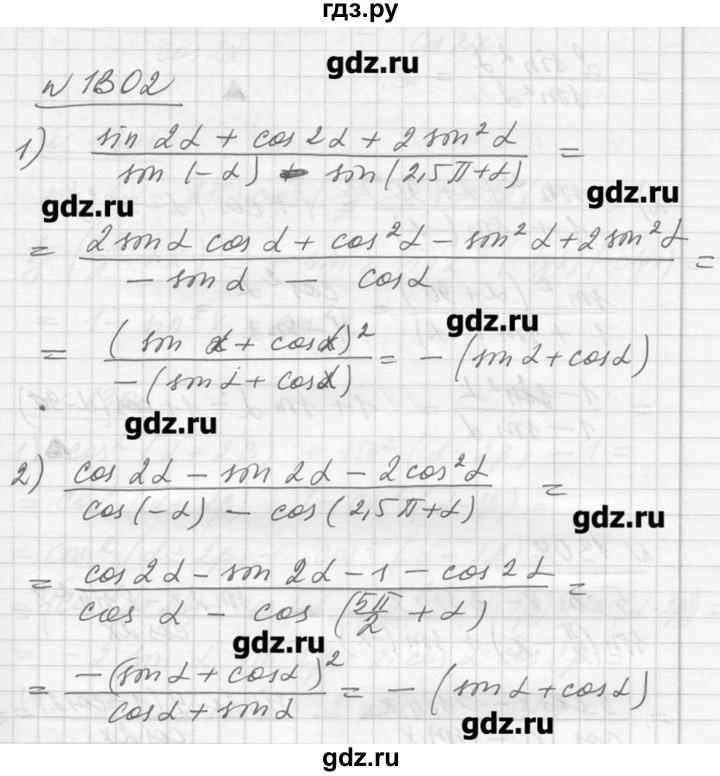 гдз.ру
gdz.ru
N 1302
1) (sin 2α + cos 2α + 2 sin² α) / (sin (-α) - sin (2,5π+α)) =
gdz.ru
gdz.ru
= (2 sin α cos α + cos² α - sin² α + 2 sin² α) / (- sin α - cos α) =
gdz.ru
= (sin α + cos α)² / (-(sin α + cos α)) = - (sin α + cos α)
gdz.ru
2) (cos 2α - sin 2α - 2 cos² α) / (cos (-α) - cos (2,5π+α)) =
gdz.ru
= (cos 2α - sin 2α - 1 - cos 2α) / (cos α - cos (5π/2 + α)) =
gdz.ru
= -(sin α + cos α)² / (cos α + sin α) = - (sin α + cos α)
gdz.ru
gdz.ru